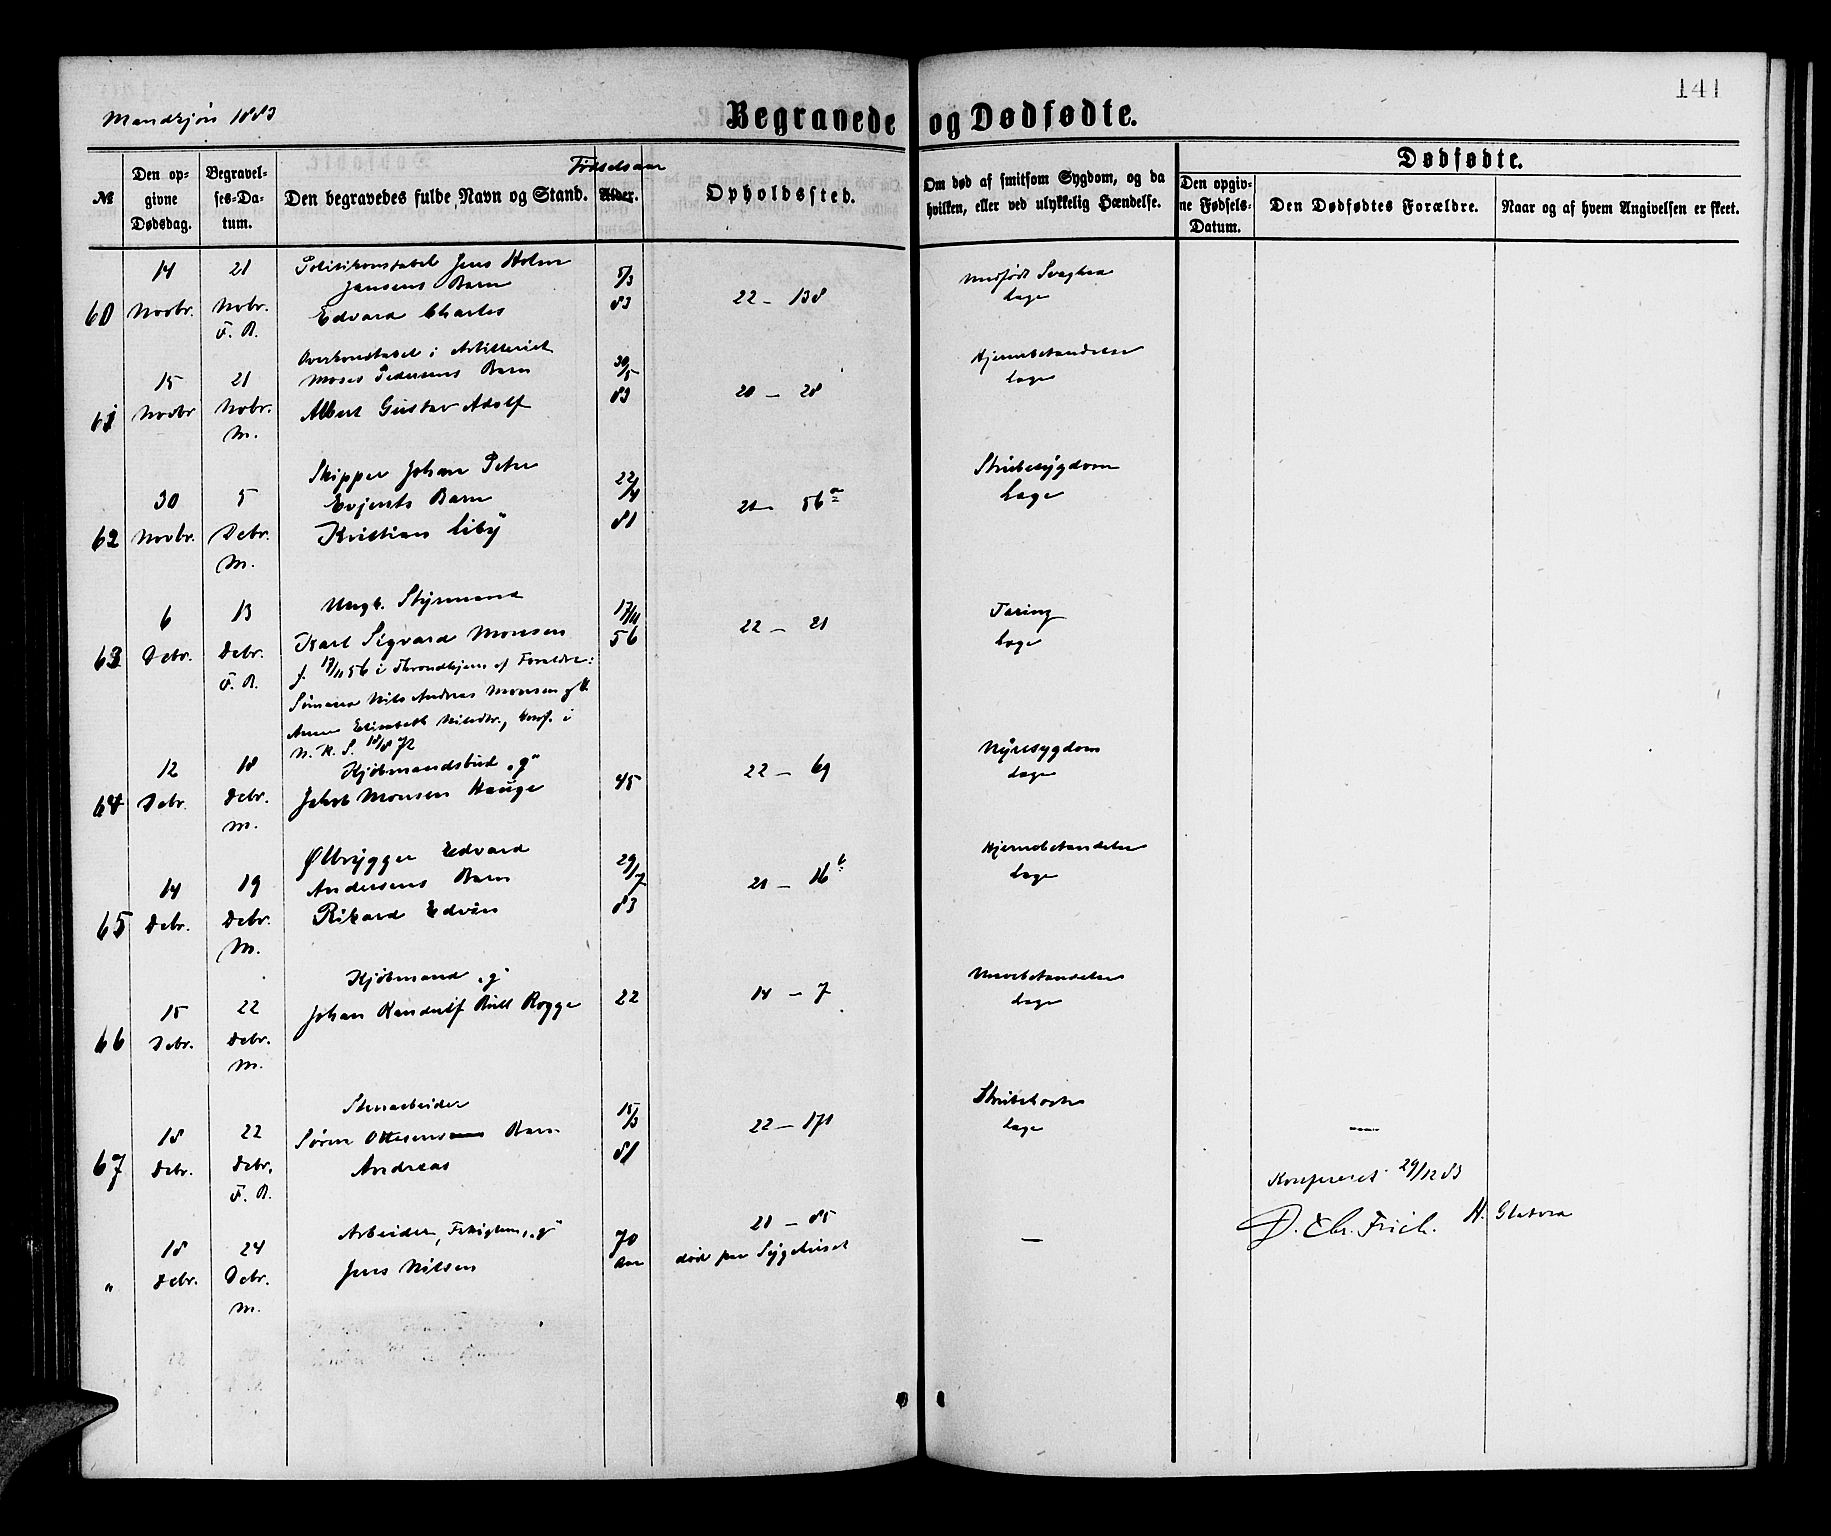 141
Mandkjøn 1883
Begravede og Dødfødte.
№
Den opgivne Dødsdag.
Begravelses-Datum.
Den begravedes fulde Navn og Stand.
Fødselsaar
Alder.
Opholdssted.
Om død af smitsom Sygdom, og da hvilken, eller ved ulykkelig Hændelse.
Dødfødte.
Den opgivne Fødsels-Datum.
Den Dødfødtes Forældre.
Naar og af hvem Angivelsen er skeet.
14 21 Politikonstabel Jens Holm 5/3 Medfødt Svaghed
Jansens Barn 22 – 138 Læge
60 Novbr. Nvbr. Edvard Charles 83
F. A.
Overkonstabel i Artilleriet 30/5 Hjernebetændelse
15 21 Moses Pedersens Barn 20 – 28 Læge
61 Novbr Nvbr. Albert Gustav Adolf 83
M.
Skipper Johan Peter 22/4 Strubesygdom
30 5 Evjents Barn 21 – 56a Læge
62 Novbr. Debr. Kristian 81
M.
6 13 Ungk. Styrmand 17/11 22 – 21 Tæring
63 Debr. Debr. Karl Sigvard Monsen 56 Læge
F. A. f. 17/11 56 i Throndhjem af Forældre:
Sømand Nils Andreas Monsen og H.
Anne Elisabeth Nilsdtr., konf. i
N. K. S. 18/8 72
12 18 Kjøbmandsbud „g“ 22 – 69 Nyresygdom
64 Debr. Debr. Jakob Monsen Hauge 45 Læge
M.
Ølbrygger Edvard 29/7 Hjernebetændelse
14 19 Andersens Barn 21 – 16b Læge
65 Debr. Debr. Rikard Edvin 83
M.
Kjøbmand „g“ 14 – 7
15 22 Johan Randulf Bull Rogge 22 Læge
66 Debr. Debr.
M.
Stenarbeider 15/3 Strubehoste
18 22 Søren Ottesens Barn 22 – 171 Læge
67 Debr. Debr. Andreas 81
F. A.
Konfereret 29/12 83
D. Chr. Frich. H.
18 24 Arbeider, Fattiglem, „g“ 70 21 – 85 —
„ Debr. Debr. Jens Nilsen Aar død paa Sygehuset
M.